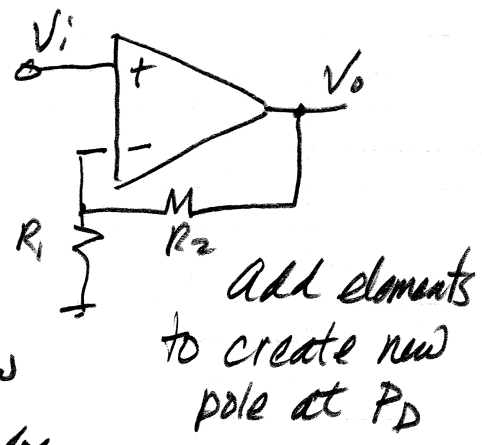 Vi
+
Vo
−
R1
R2
Add elements
to create new
pole at PD